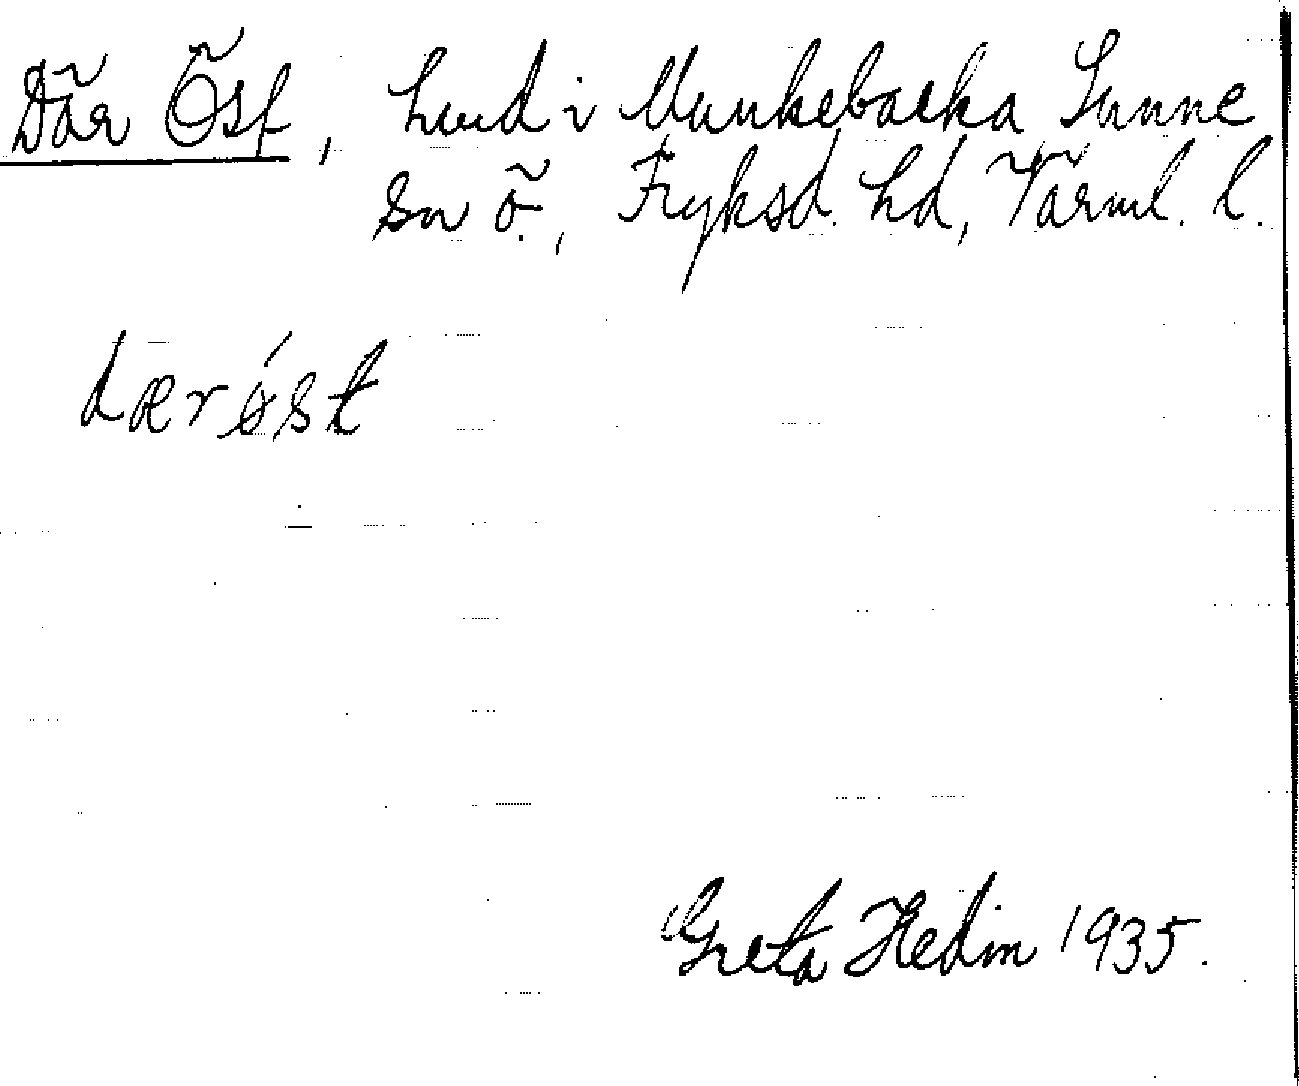 Där Öst, hmd i Munkebacka Sunne
sn ö., Fryksd. hd, Värml. l.
dærø´st
Greta Hedin 1935.